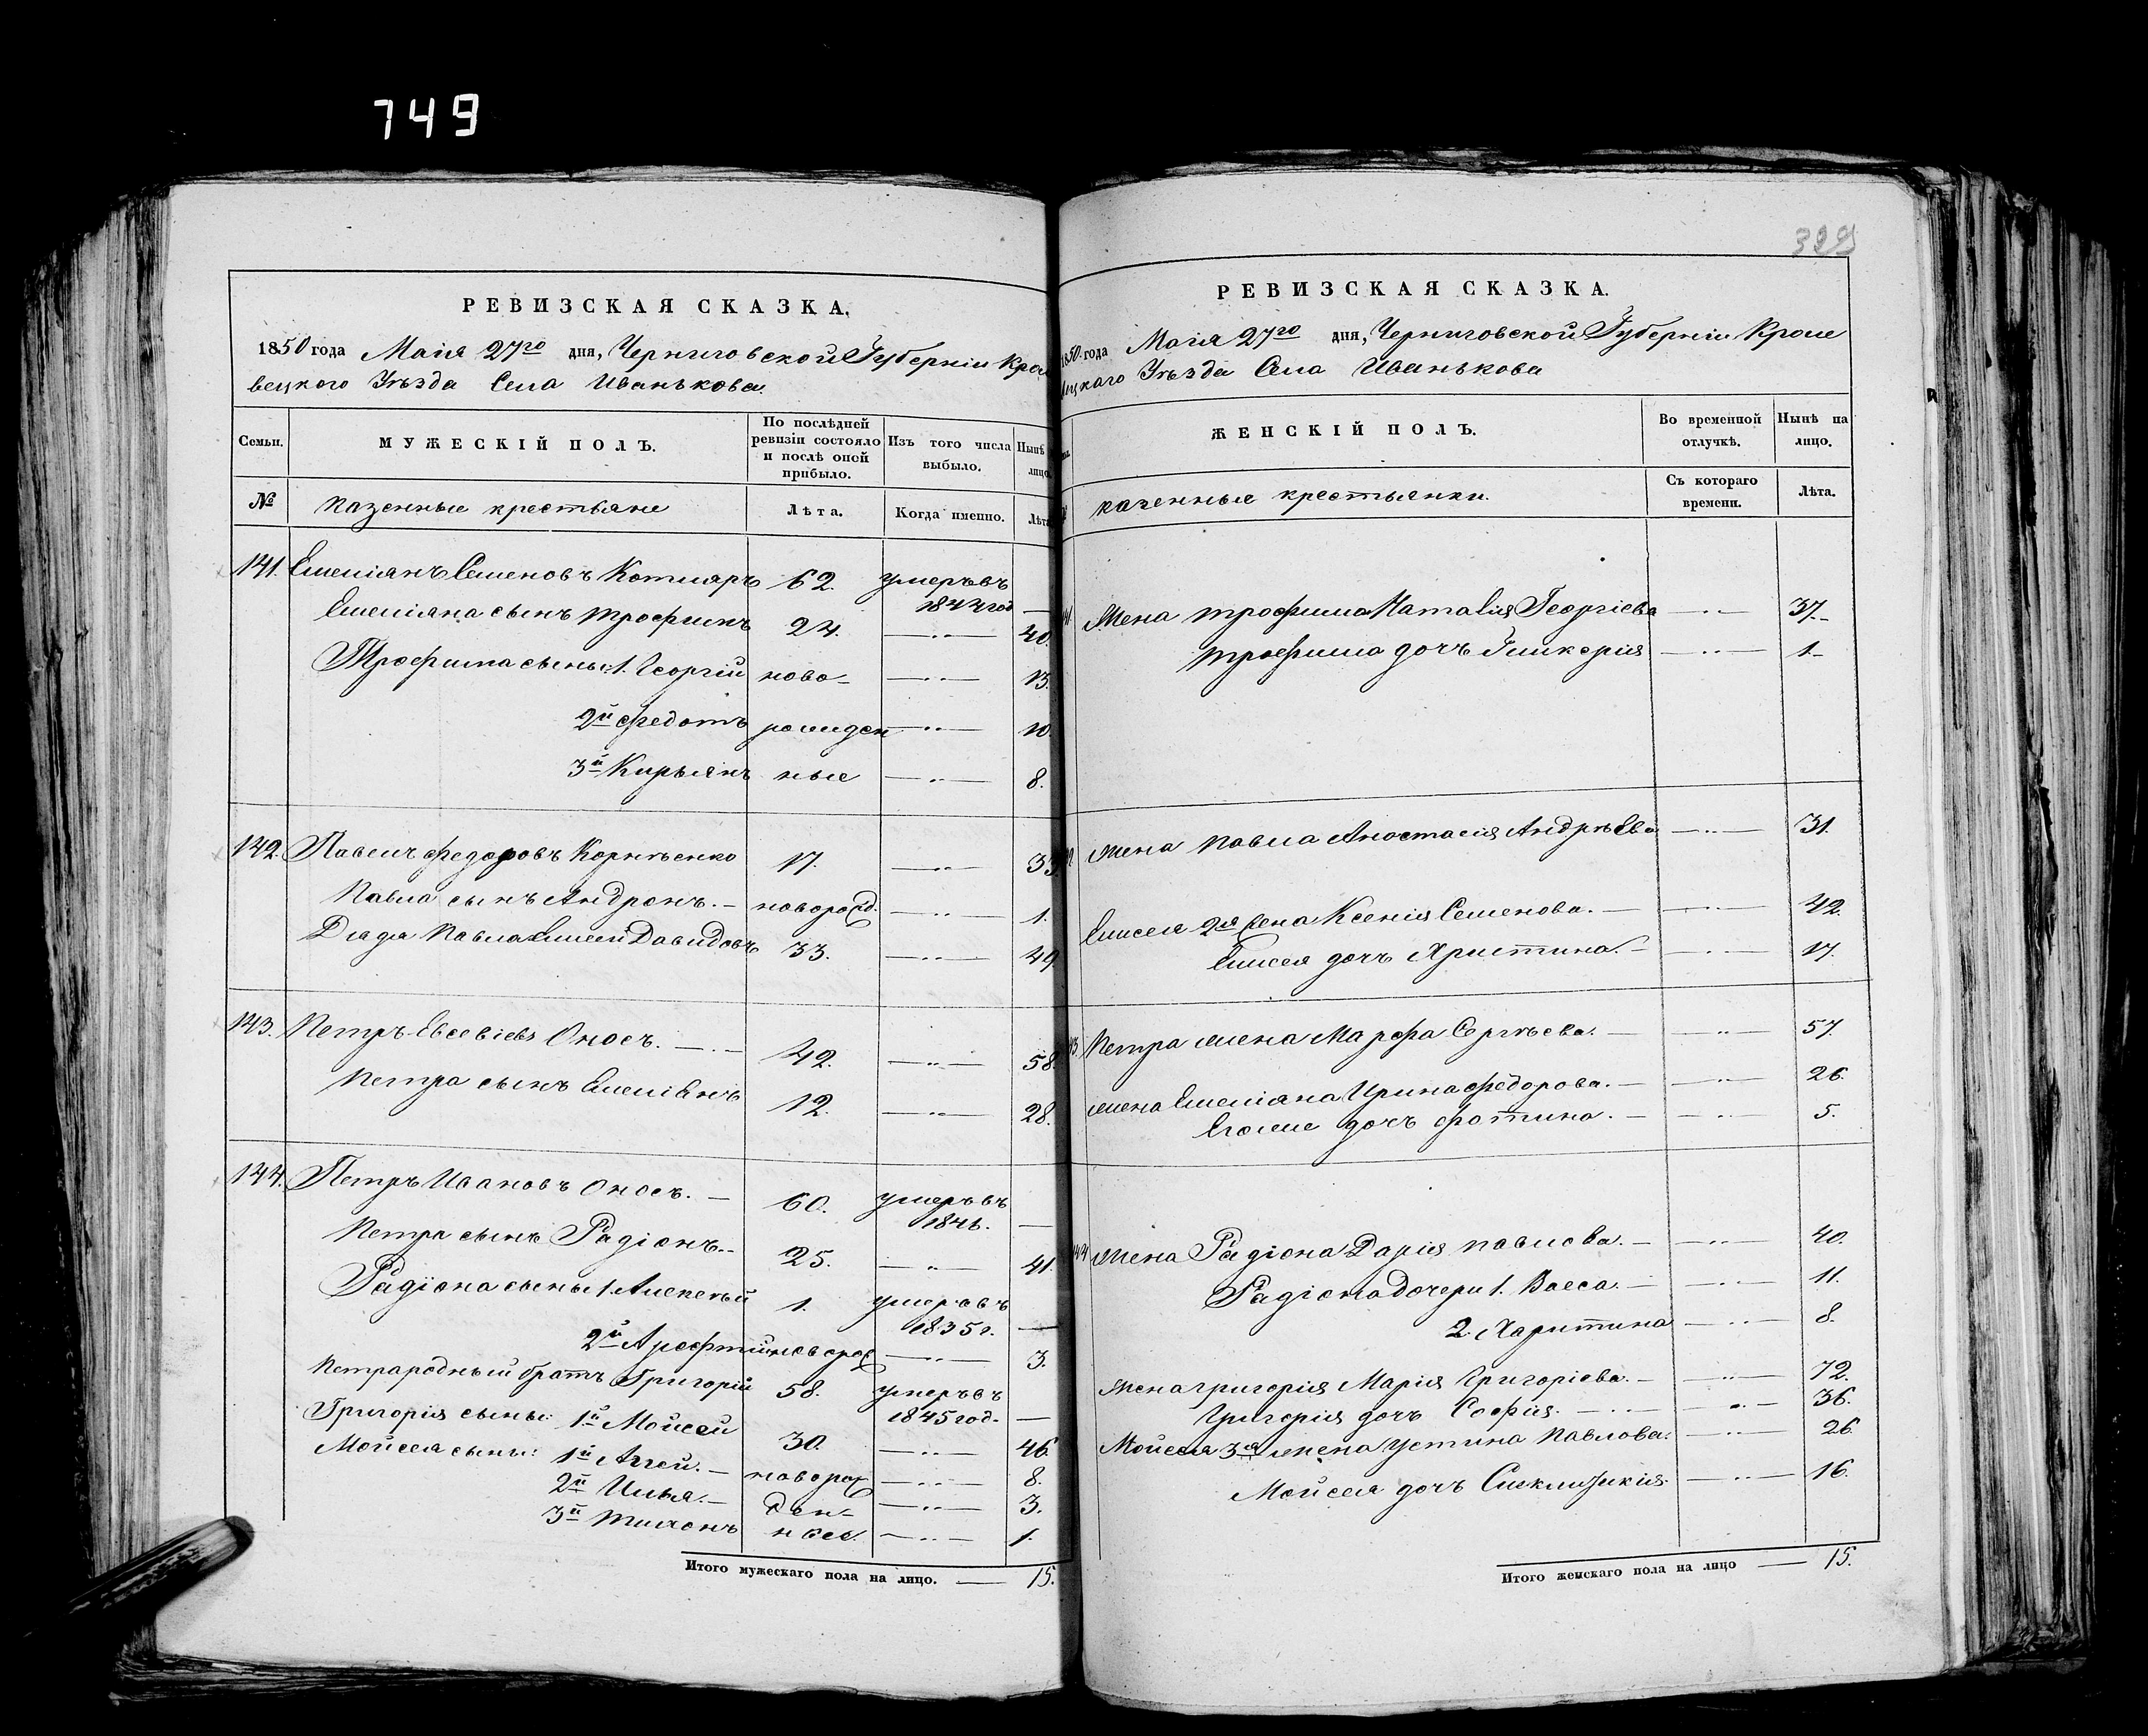 749
399
РЕВИЗСКАЯ СКАЗКА.
1850 года Маія 27го дня, Черниговской Губерніи Кроле
вецкого Уѣзда Села Иванькова.
Семьи.
МУЖЕСКІЙ ПОЛЪ.
По послѣдней ревизіи состояло и послѣ оной прибыло.
Изъ того числа выбыло.
Нынѣ лицо
№
казенные крестьяне
Лѣта.
Когда именно.
Лѣта
141. Емеліянъ Семеновъ Котляръ 62. умеръ въ
1844 год —
Емеліяна сынъ Трофимъ 24. —„— 40.
Трофима сыны: 1. Георгій ново- —„— 13.
2й Федотъ рожден —„— 10.
3й Кирьянъ ные —„— 8.
142. Павелъ Федоровъ Корнѣенко 17. —„— 33.
Павла сынъ Андронъ. —новорожд. —„— 1.
Дядя Павла Елисей Давидовъ 33. —„— 49.
143. Петръ Евсевіевъ Оносъ. 42. —„— 58.
Петра сынъ Емеліянъ 12. —„— 28.
144. Петръ Ивановъ Оносъ. — 60. умеръ въ
1846. —
Петра сынъ Радіонъ. 25. —„— 41.
Радіона сыны 1. Алексѣй 1. умеръ въ
1835 г. —
2й Арефтій новорож —„— 3.
Петра родный братъ Григорій 58. умеръ въ
1845 год. —
Григорія сыны: 1й Мойсей 30. —„— 46.
Мойсея сыны: 1й Аггей. — новорож —„— 8.
2й Илья. — ден- —„— 3.
3й Тихонъ ные. —„— 1.
Итого мужескаго пола на лицо. — 15.
РЕВИЗСКАЯ СКАЗКА.
1850 года Маія 27го дня, Черниговской Губерніи Кроле
вецкаго Уѣзда Села Иванькова
ЖЕНСКІЙ ПОЛЪ.
Во временной отлучкѣ.
Нынѣ на лицо.
казенные крестьянки.
Съ котораго времени.
Лѣта.
141 Жена Трофима Наталія Георгіева —„— 37.
Трофима дочь Гликерія —„— 1.
Жена Павла Анастасія Андрѣева —„— 31.
Елисея 2я жена Ксенія Семенова. — —„— 42.
Елисея дочь Христина. — —„— 17.
Петра жена Марфа Сергѣева. — —„— 57.
жена Емеліяна Ирина Федорова. — —„— 26.
Егоже дочь Фотина. — —„— 5.
144 Жена Радіона Дарія Павлова. — —„— 40.
Радіона дочери 1. Васса. — —„— 11.
2. Харитина —„— 8.
Жена Григорія Марія Григоріева. — —„— 72.
Григорія дочь Софія. —„— 36.
Мойсея 3я жена Устина Павлова. —„— 26.
Мойсея дочь Синклитикія. —„— 16.
Итого женскаго пола на лицо — 15.